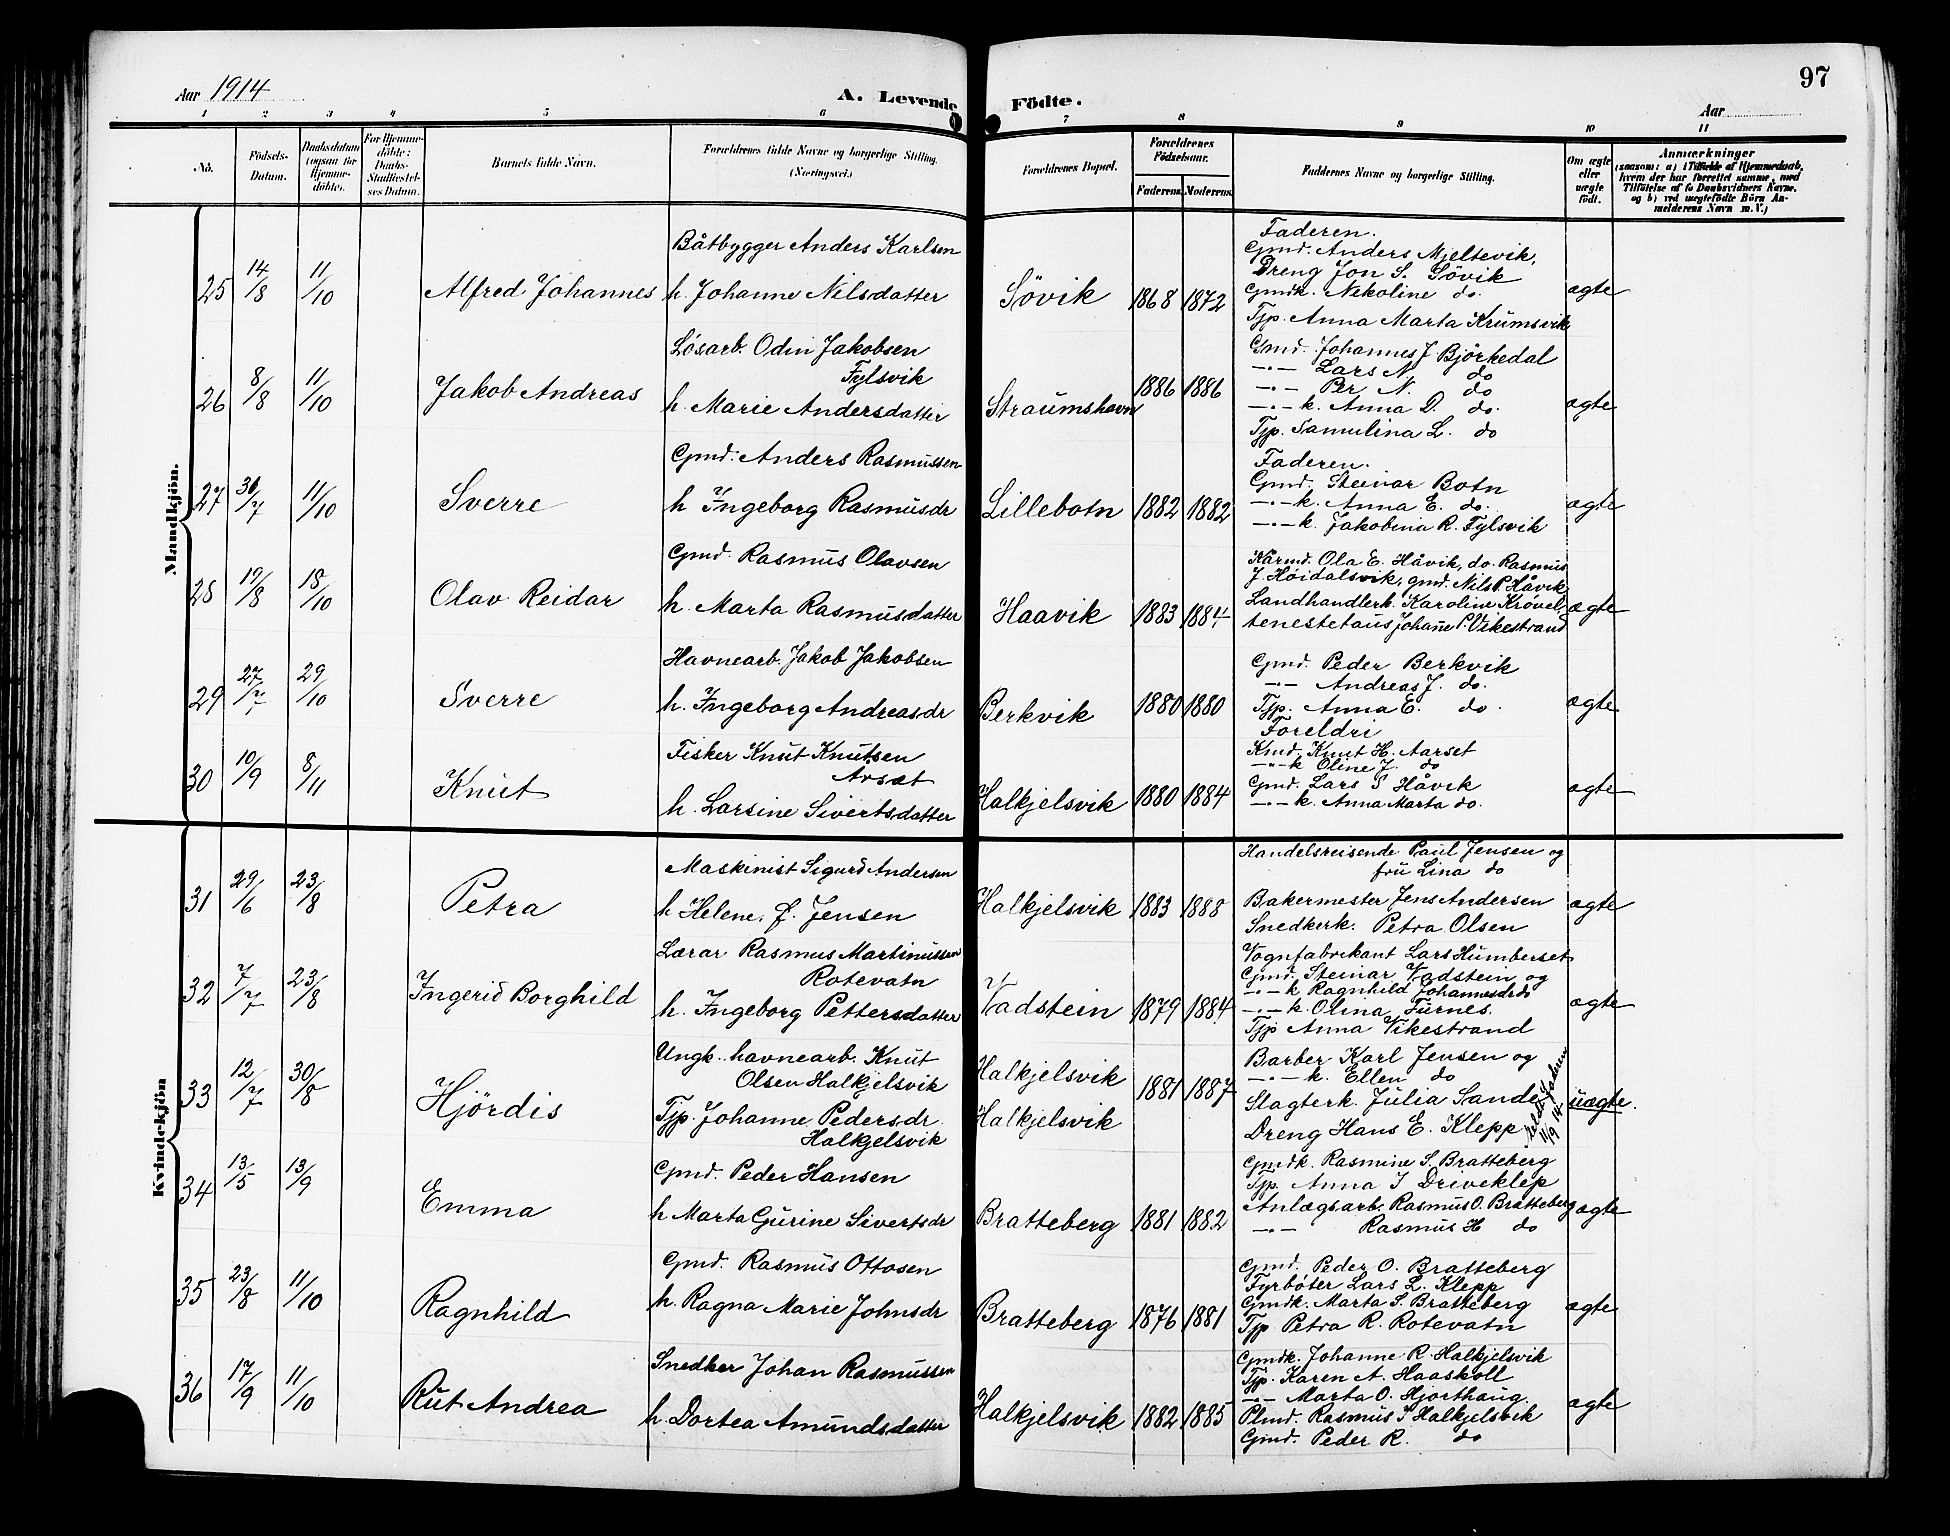 97
Aar 1914
A. Levende Födte.
Aar
1 2 3 4 5 6 7 8 9 10 11
No.
Födsels-Datum.
Daabsdatum (ogsaa for Hjemme-döbte).
For Hjemme-döbte: Daabs-Stadfæstel-ses Datum.
Barnets fulde Navn.
Forældrenes fulde Navne og borgerlige Stilling. (Næringsvei.)
Forældrenes Bopæl.
Forældrenes Födselsaar.
Faderens. Moderens.
Faddernes Navne og borgerlige Stilling.
Om ægte eller uægte födt.
Anmærkninger
(saasom: a) i Tilfælde af Hjemmedaab, hvem der har forrettet samme, med Tilföielse af to Daabsvidners Navne, og b) ved uægtefödte Börn An-melderens Navn m. V.)
Mandkjön.
25 14/8 11/10 Alfred Johannes
Båtbygger Anders Karlsen
h. Johanne Nilsdatter
Sövik 1868 1872
Faderen.
Gmd. Anders Mjeltevik,
Dreng Jon S. Sövik
Gmdk. Nikoline do.
Tjp. Anna Marta Krumsvik
ægte
26 8/8 11/10 Jakob Andreas
Løsarb. Odin Jakobsen
Fylsvik
h. Marie Andersdatter
Straumshavn 1886 1886
Gmd. Johannes J Björkedal
-"- Lars N. do
-"- Per N. do
-"-k. Anna D. do.
Tjp. Samulina L. do
ægte
27 30/7 11/10 Sverre
Gmd. Anders Rasmussen
h Ingeborg Rasmusdr
Lillebotn 1882 1882
Faderen.
Gmd. Steinar Botn
-"-k. Anna E. do.
-"-k. Jakobina R. Fylsvik
ægte
28 19/8 18/10 Olav Reidar
Gmd. Rasmus Olavsen
h. Marta Rasmusdatter
Haavik 1883 1884
Kårmd. Ola E. Håvik, do. Rasmus
J. Høidalsvik, gmd. Nils P. Håvik
Landhandlerk. Karoline Krövel,
tenestetaus Johane P. Vikestrand
ægte
29 27/7 29/10 Sverre
Havnearb. Jakob Jakobsen
h. Ingeborg Andreasdr
Berkvik 1880 1880
Gmd. Peder Berkvik
-"- Andreas J. do.
Tjp. Anna E. do.
Foreldri
ægte
30 10/9 8/11 Knut
Fisker Knut Knutsen
Årsæt
h. Larsine Sivertsdatter
Halkjelsvik 1880 1884
Kmd. Knut H. Aarset
-"-k Oline J. do
Gmd. Lars S Håvik
-"-k. Anna Marta do.
ægte
Kvindekjön
31 29/6 23/8 Petra
Maskinist Sigurd Andersen
h Helene, f. Jensen
Halkjelsvik 1883 1888
Handelsreisende Paul Jensen og
fru Lina do
Bakermester Jens Andersen
Snedkerk. Petra Olsen
ægte
32 7/7 23/8 Ingerid Borghild
Lærar Rasmus Martinussen
Rotevatn
h. Ingeborg Pettersdatter
Vadstein 1879 1884
Vognfabrikant Lars Humberset
Gmd. Steinar Vadstein og
-"-k Ragnhild Johannesdr do
-"-k. Olina Furnes.
Tjp Anna Vikestrand
ægte
33 12/7 30/8 Hjördis
Ungk. havnearb. Knut
Olsen Halkjelsvik
Tjp. Johanne Pedersdr.
Halkjelsvik
Halkjelsvik
Halkjelsvik
1881 1887
Barber Karl Jensen og
-"-k. Ellen do
Slagterk. Julia Sande
Dreng Hans E. Klepp
Faderen 11/9 14.
uægte.
34 13/5 13/9 Emma
Gmd. Peder Hansen
h Marta Gurine Sivertsdr
Bratteberg 1881 1882
Gmdk. Rasmine S. Bratteberg
Tjp. Anna J Driveklep
Anlægsarb. Rasmus O. Bratteberg
-"- Rasmus H do
ægte
35 23/8 11/10 Ragnhild
Gmd. Rasmus Ottosen
h. Ragna Marie Johnsdr
Bratteberg 1876 1881
Gmd. Peder O. Bratteberg
Fyrböter Lars L. Klepp
Gmdk. Marta S. Bratteberg
Tjp Petra R. Rotevatn
ægte
36 17/9 11/10 Rut Andrea
Snedker Johan Rasmussen
h. Dortea Amundsdatter
Halkjelsvik 1882 1885
Gmdk. Johanne R. Halkjelsvik
Tjp. Karen A. Haaskoll
-"- Marta O. Hjorthaug
Plmd. Rasmus J Halkjelsvik
Gmd. Peder R. do
ægte